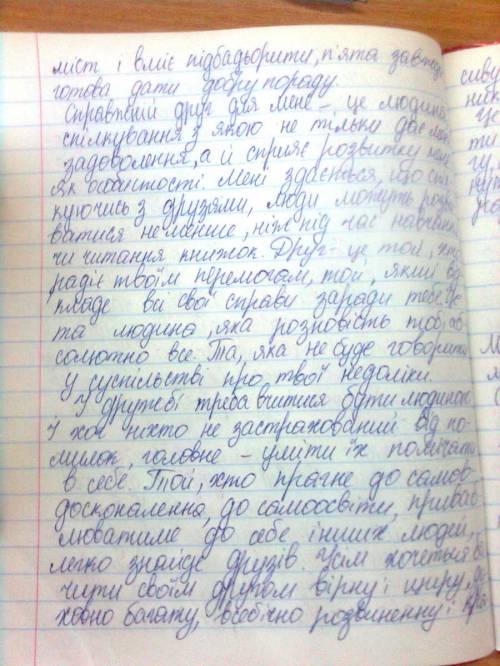 міст і вміє підбадьорити, п'ята завжди
готова дати добру пораду.
Справжній друг для мене - це людина,
спілкування з якою не тільки дає мені
задоволення, а й сприяє розвитку мене
як особистості. Мені здається, що спіл
куючись з друзями, люди можуть розви
ватися не менше, ніж під час навчання
чи читання книжок. Друг - це той, хто
радіє твоїм перемогам, той, який від
кладе всі свої справи заради тебе. Це
та людина, яка розповість тобі аб-
солютно все. Та, яка не буде говорити
у суспільстві про твої недоліки.
У дружбі треба вчитися бути людиною.
І хоч ніхто не застрахований від по-
милок, головне - уміти їх помічати
в себе. Той, хто прагне до самов-
досконалення, до самоосвіти, приваб-
люватиме до себе інших людей,
легко знайде друзів. Усім хочеться ба
чити своїм другом вірну і щиру, ду
ховно багату, всебічно розвиненну і
сиву
ти
гу